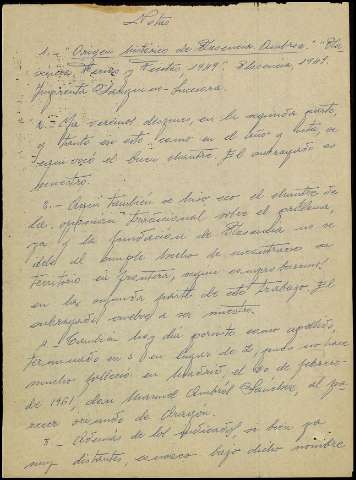 Notas
1.- "Origen histórico de Plasencia. Ambroz". "Pla-
sencia, Ferias y Fiestas, 1949". Plasencia, 1949.
Imprenta Sánchez
2.- Ya veremos después, en la segunda parte,
y tanto en este como en el año y fecha, se
equivocó el buen chantre. El subrayado es
nuestro.
3.- Aquí también se hizo eco el chantre de
la "opinión" tradicional sobre el problema,
ya que la fundación de Plasencia no se
debió al simple hecho de encontrarse su
territorio en frontera, según comprobaremos
en la segunda parte de este trabajo. El
subrayado vuelve a ser nuestro.
4. También hoy día persiste como apellido,
terminado en s en lugar de z, pues no hace
mucho falleció en Madrid, el 20 de febrero
de 1961, don Manuel Ambrós Sánchez, al pa-
recer oriundo de Aragón.
5.- Además de los indicados, si bien ya
muy distantes, conozco bajo dicho nombre